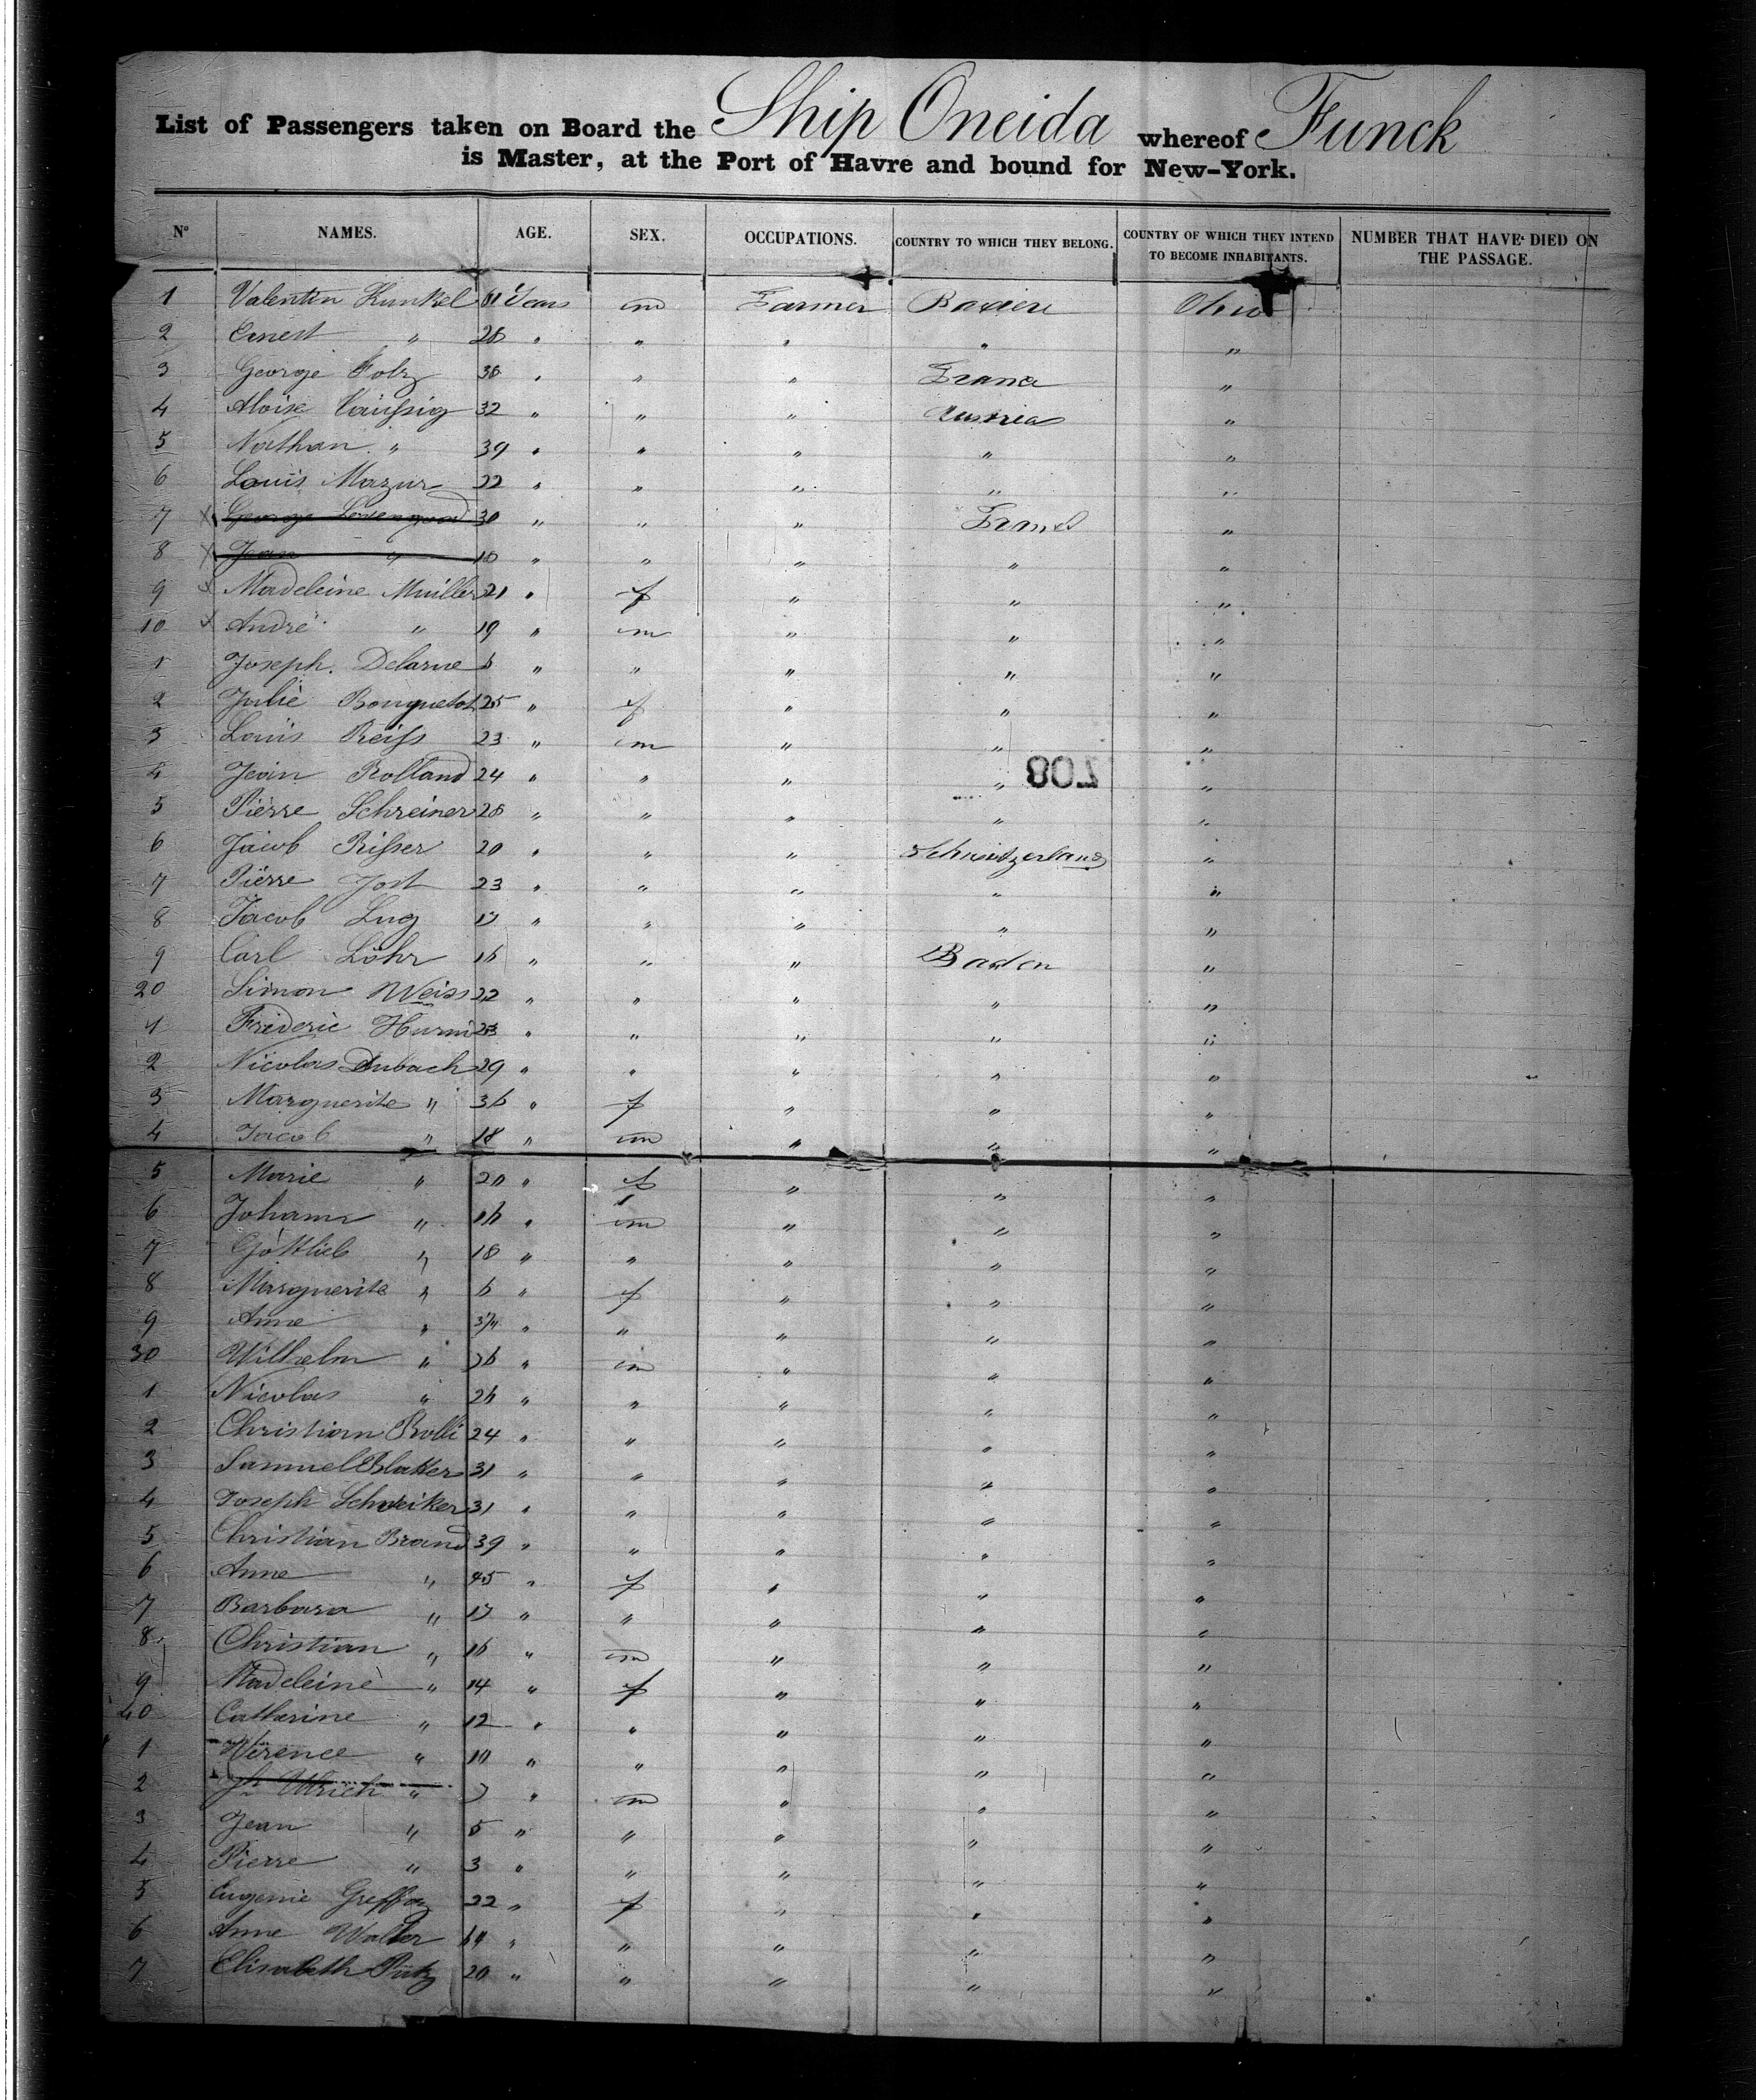 List of Passengers taken on Board the Ship Oneida whereof Funck
is Master, at the Port of Havre and bound for New-York.
Nº NAMES. AGE. SEX. OCCUPATIONS. COUNTRY TO WHICH THEY BELONG. COUNTRY OF WHICH THEY INTEND TO BECOME INHABITANTS. NUMBER THAT HAVE DIED ON THE PASSAGE.
1 Valentin Kunkel 61 Years m Farmer Baviere Ohio
2 Ernest " 28 " " " " "
3 George Folz 36 " " " France "
4 Aloise 32 " " " Austria "
5 Nathan " 39 " " " " "
6 Louis Mazur 22 " " " " "
7 George 30 " " " France "
8 Jean " 18 " " " " "
9 Madeleine Muller 21 " f " " "
10 André " 19 " m " " "
1 Joseph Delarue " " " " "
2 Julie 25 " f " " "
3 Louis Reiss 23 " m " " "
4 Jean Rolland 24 " " " " "
208
5 Pierre Schreiner 28 " " " " "
6 Jacob Risser 20 " " " Schwitzerland "
7 Pierre Jost 23 " " " " "
8 Jacob Lug 17 " " " " "
9 Carl Löhr 16 " " " Baden "
20 Simon Weiss 22 " " " " "
1 Frederic Hurni 23 " " " " "
2 Nicolas Dubach 29 " " " " "
3 Marguerite " 36 " f " " "
4 Jacob " 18 " m " " "
5 Marie " 20 " f " " "
6 Johann " 16 " m " " "
7 Gottlieb " 18 " " " " "
8 Marguerite " 6 " f " " "
9 Anne " " " " " "
30 Wilhelm " " m " " "
1 Nicolas " 26 " " " " "
2 Christian Rolli 24 " " " " "
3 Samuel Blatter 31 " " " " "
4 Joseph Schweiker 31 " " " " "
5 Christian Brand 39 " " " " "
6 Anne " 45 " f " " "
7 Barbara " 17 " " " " "
8 Christian " 16 " m " " "
9 Madeleine " 14 " f " " "
40 Catherine " 12 " " " " "
1 Verence " 10 " " " " "
2 Ulrich " 7 " m " " "
3 Jean " 5 " " " " "
4 Pierre " 3 " " " " "
5 Eugenie 22 " f " " "
6 Anne Walter " " " " "
7 Elisabeth 20 " " " " "